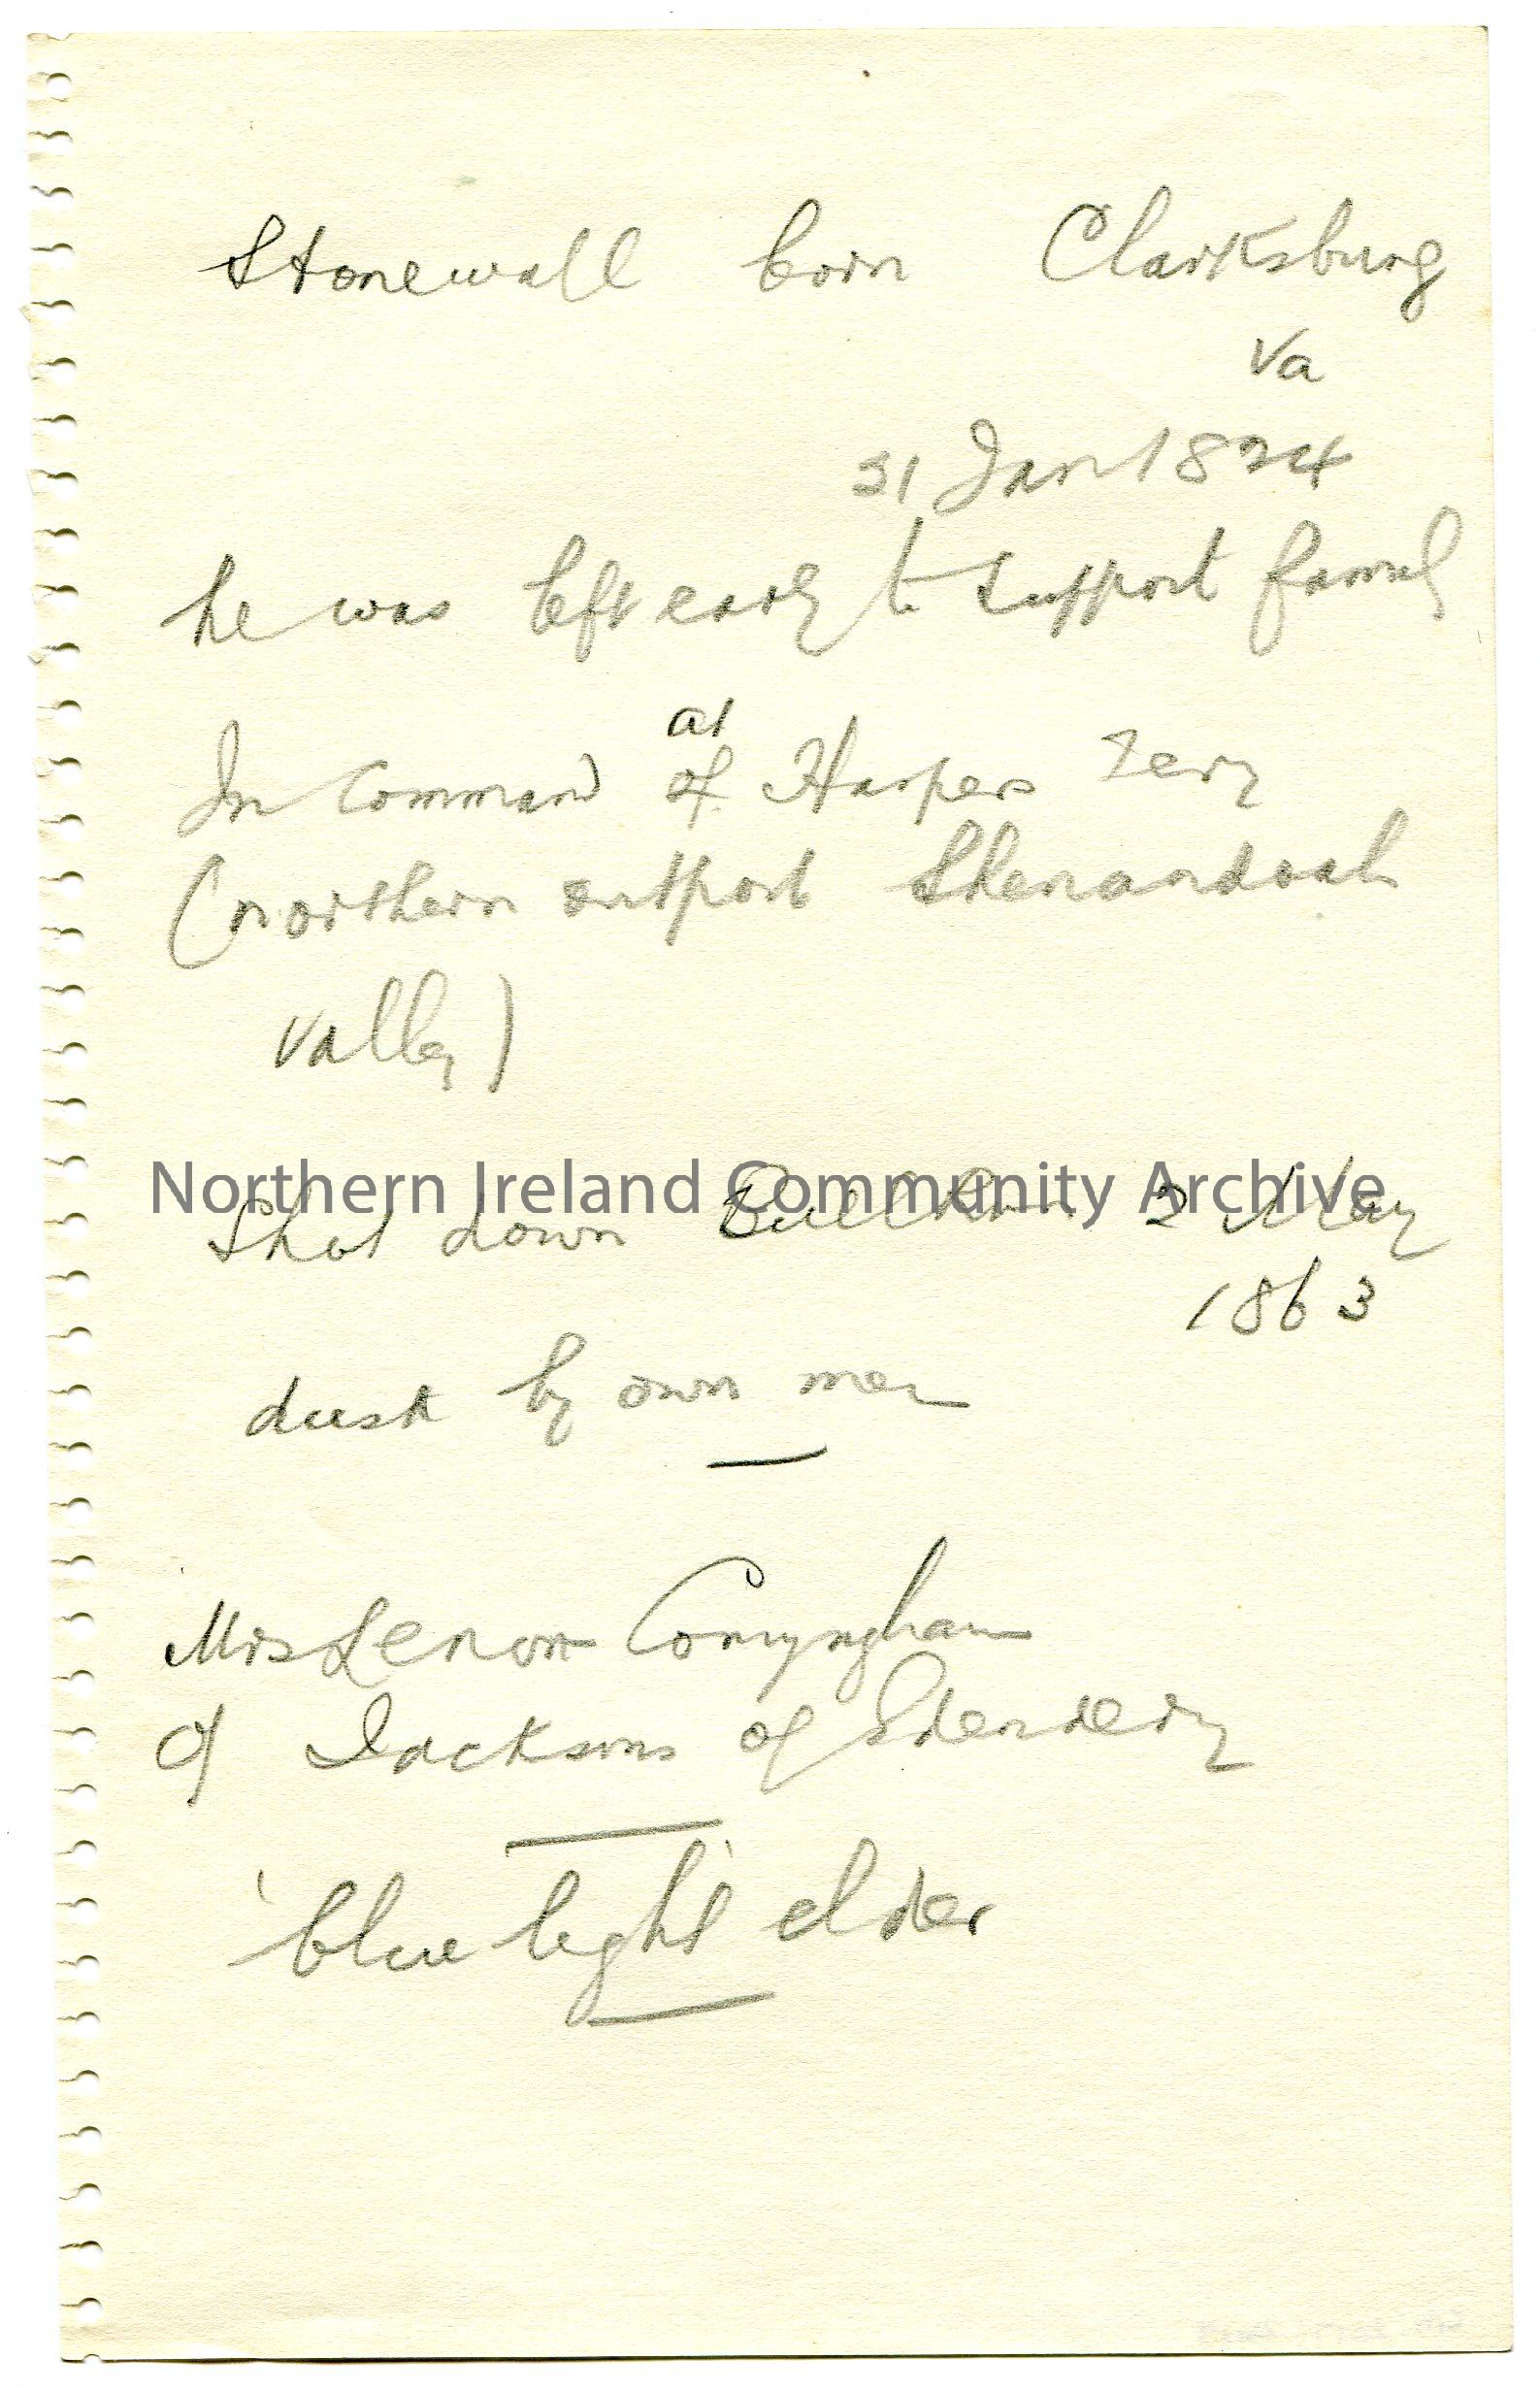 Stonewall born Clarksburg
Va
21 Jan 1824
he was left early to support family
at
In Command of Harpers Ferry
(northern outpost Shenandoah
Valley)
Northern Ireland Community Archive
Shot down Bull Run 2 May
1863
dusk by own men
Mrs Lenox Conyngham
of Jacksons of
'blue light' elder